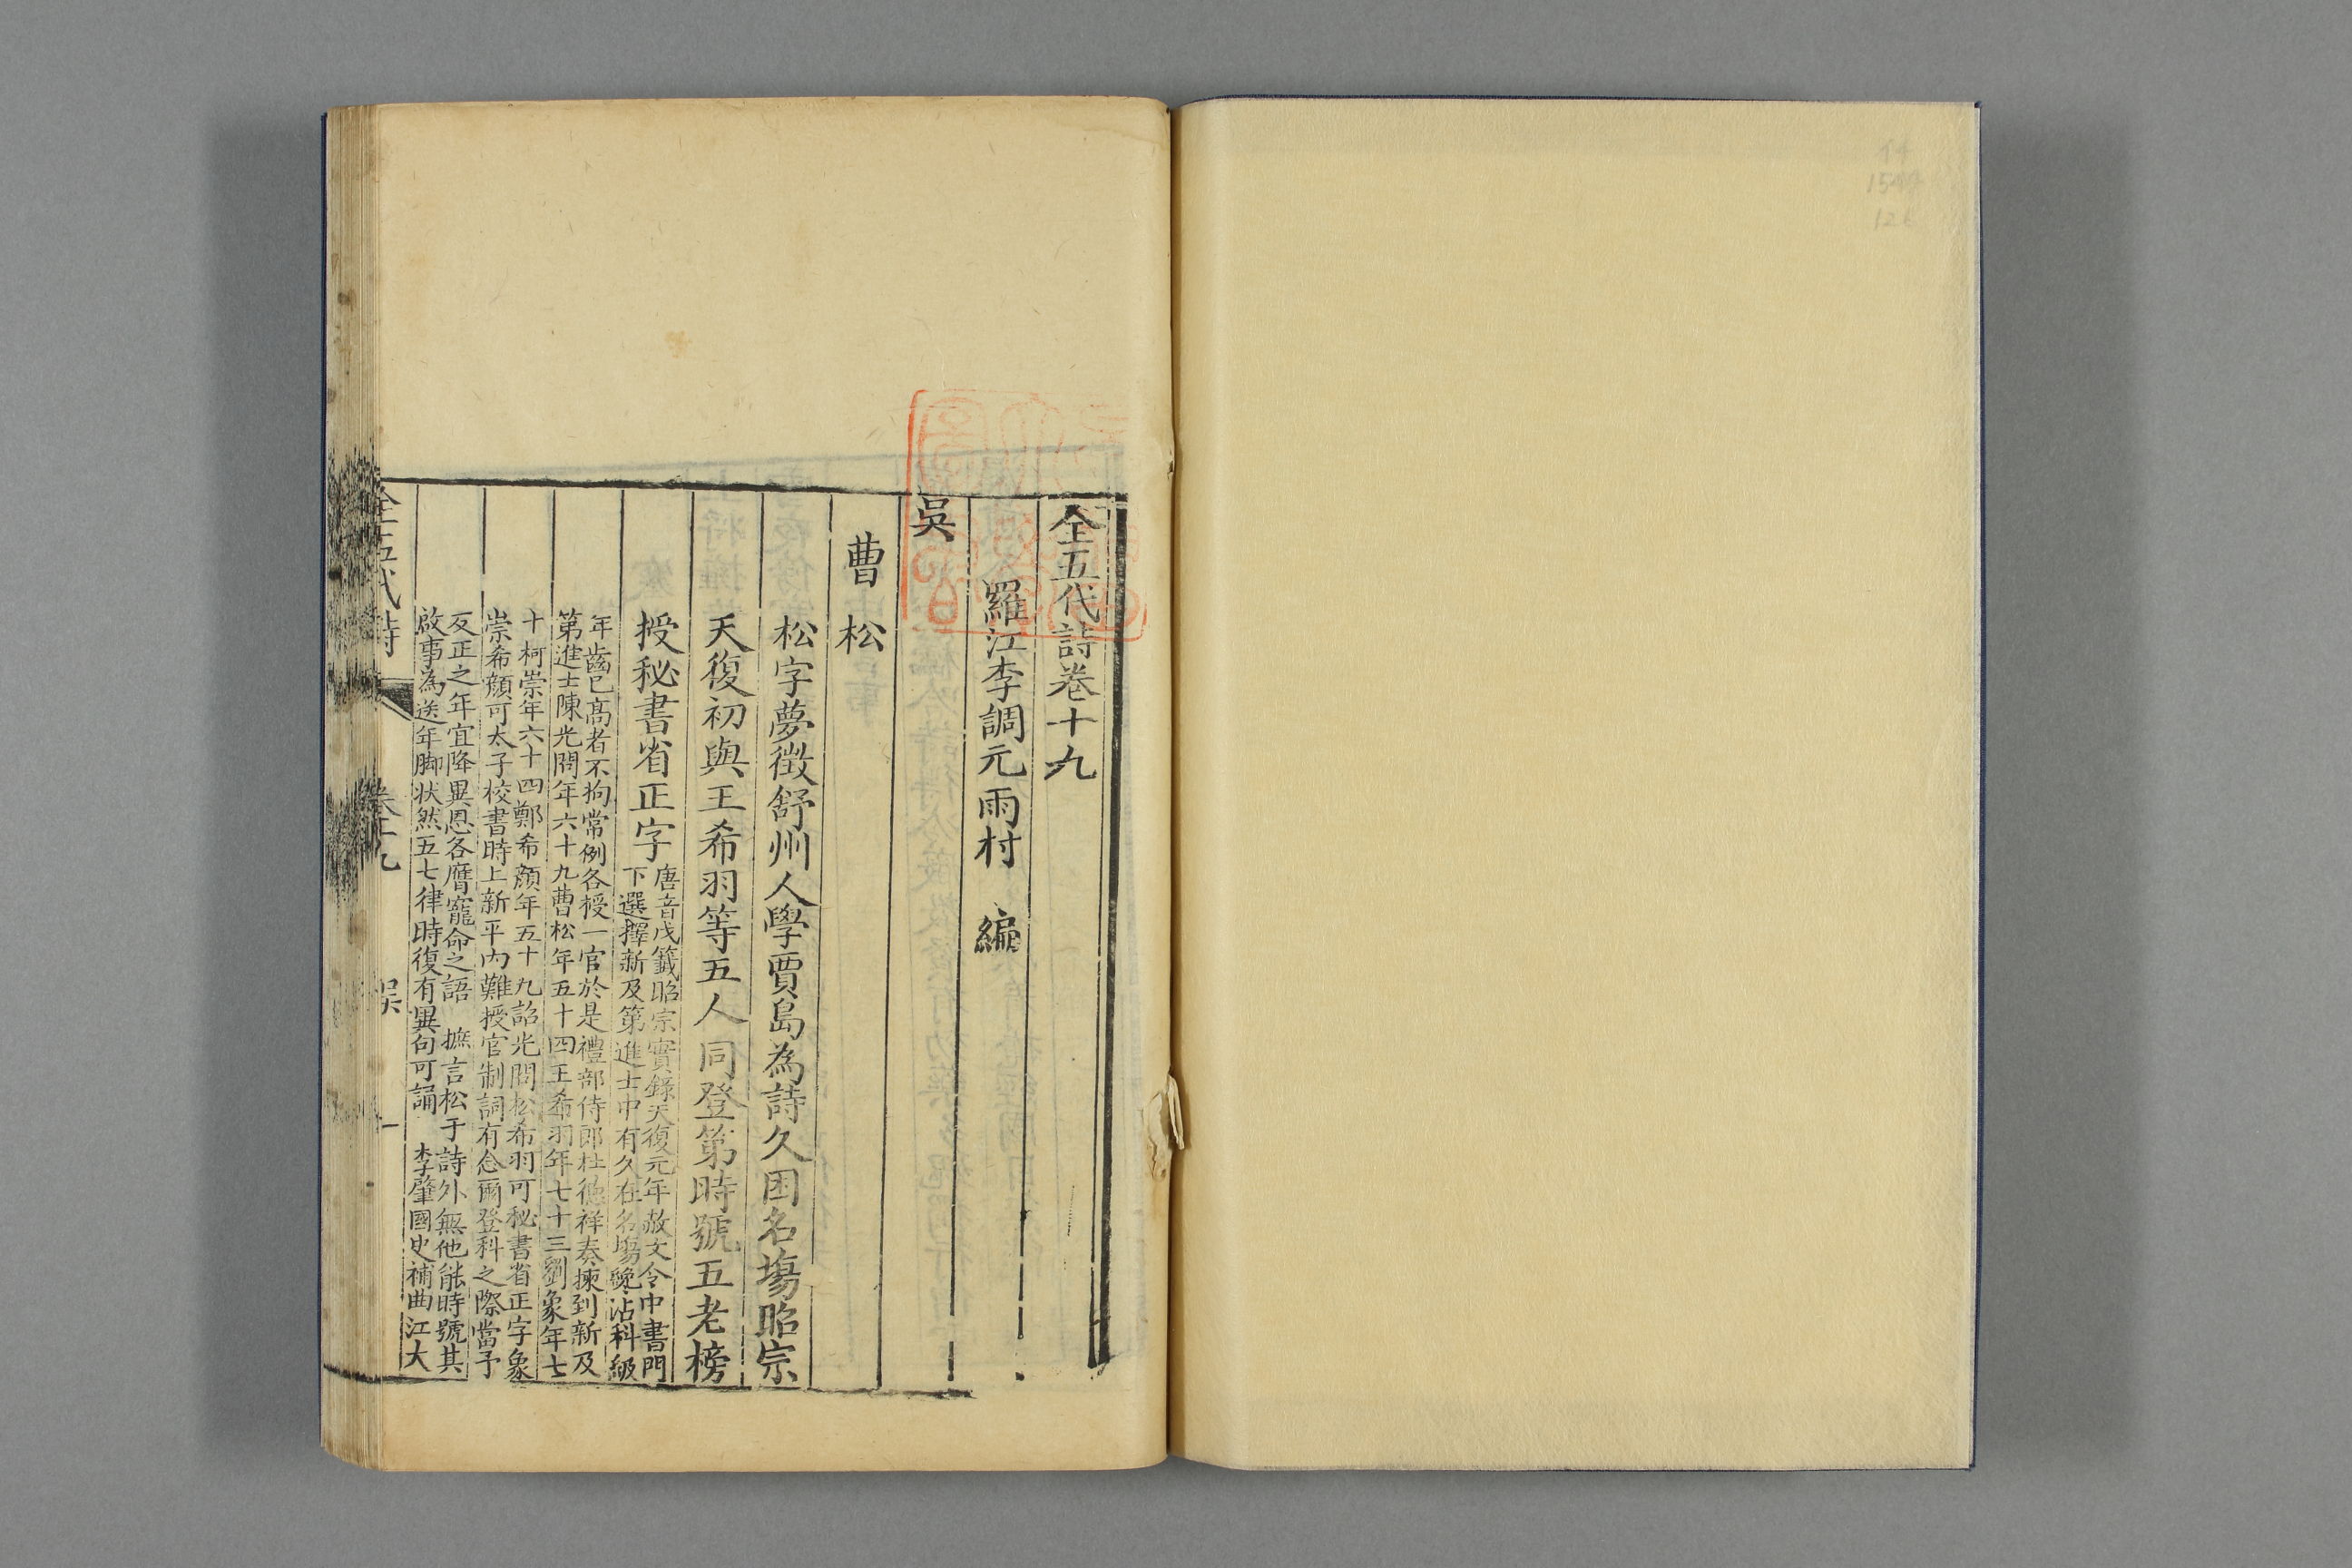 全五代詩卷十九
羅江李調元雨村 編
吳
曹松
松字夢徵舒州人學賈島為詩久困名場昭宗
天復初與王希羽等五人同登第時號五老榜
授秘書省正字
唐音戊籖昭宗實錄天復元年赦文令中書門
下選擇新及第進士中有久在名塲纔沾科級
年齒已髙者不拘常例各授一官於是禮部侍郎杜德祥奏揀到新及
第進士陳光問年六十九曹松年五十四王希羽年七十三劉象年七
十柯崇年六十四鄭希顔年五十九詔光問松希羽可秘書省正字象
崇希顔可太子校書時上新平內難授官制詞有念爾登科之際當予
反正之年宜降異恩各膺寵命之語 摭言松于詩外無他能時號其
啟事為送年脚狀然五七律時復有異句可誦 李肇國史補曲江大
全五代詩
卷十九
吳
一